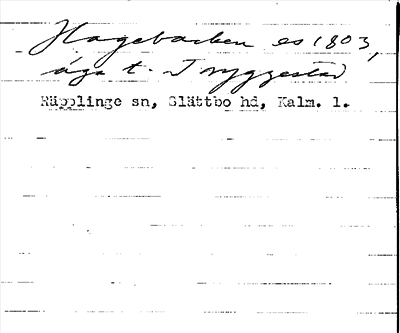 Hagebacken es 1803,
äga t. Tryggestad
Räpplinge sn, Slättbo hd, Kalm. l.